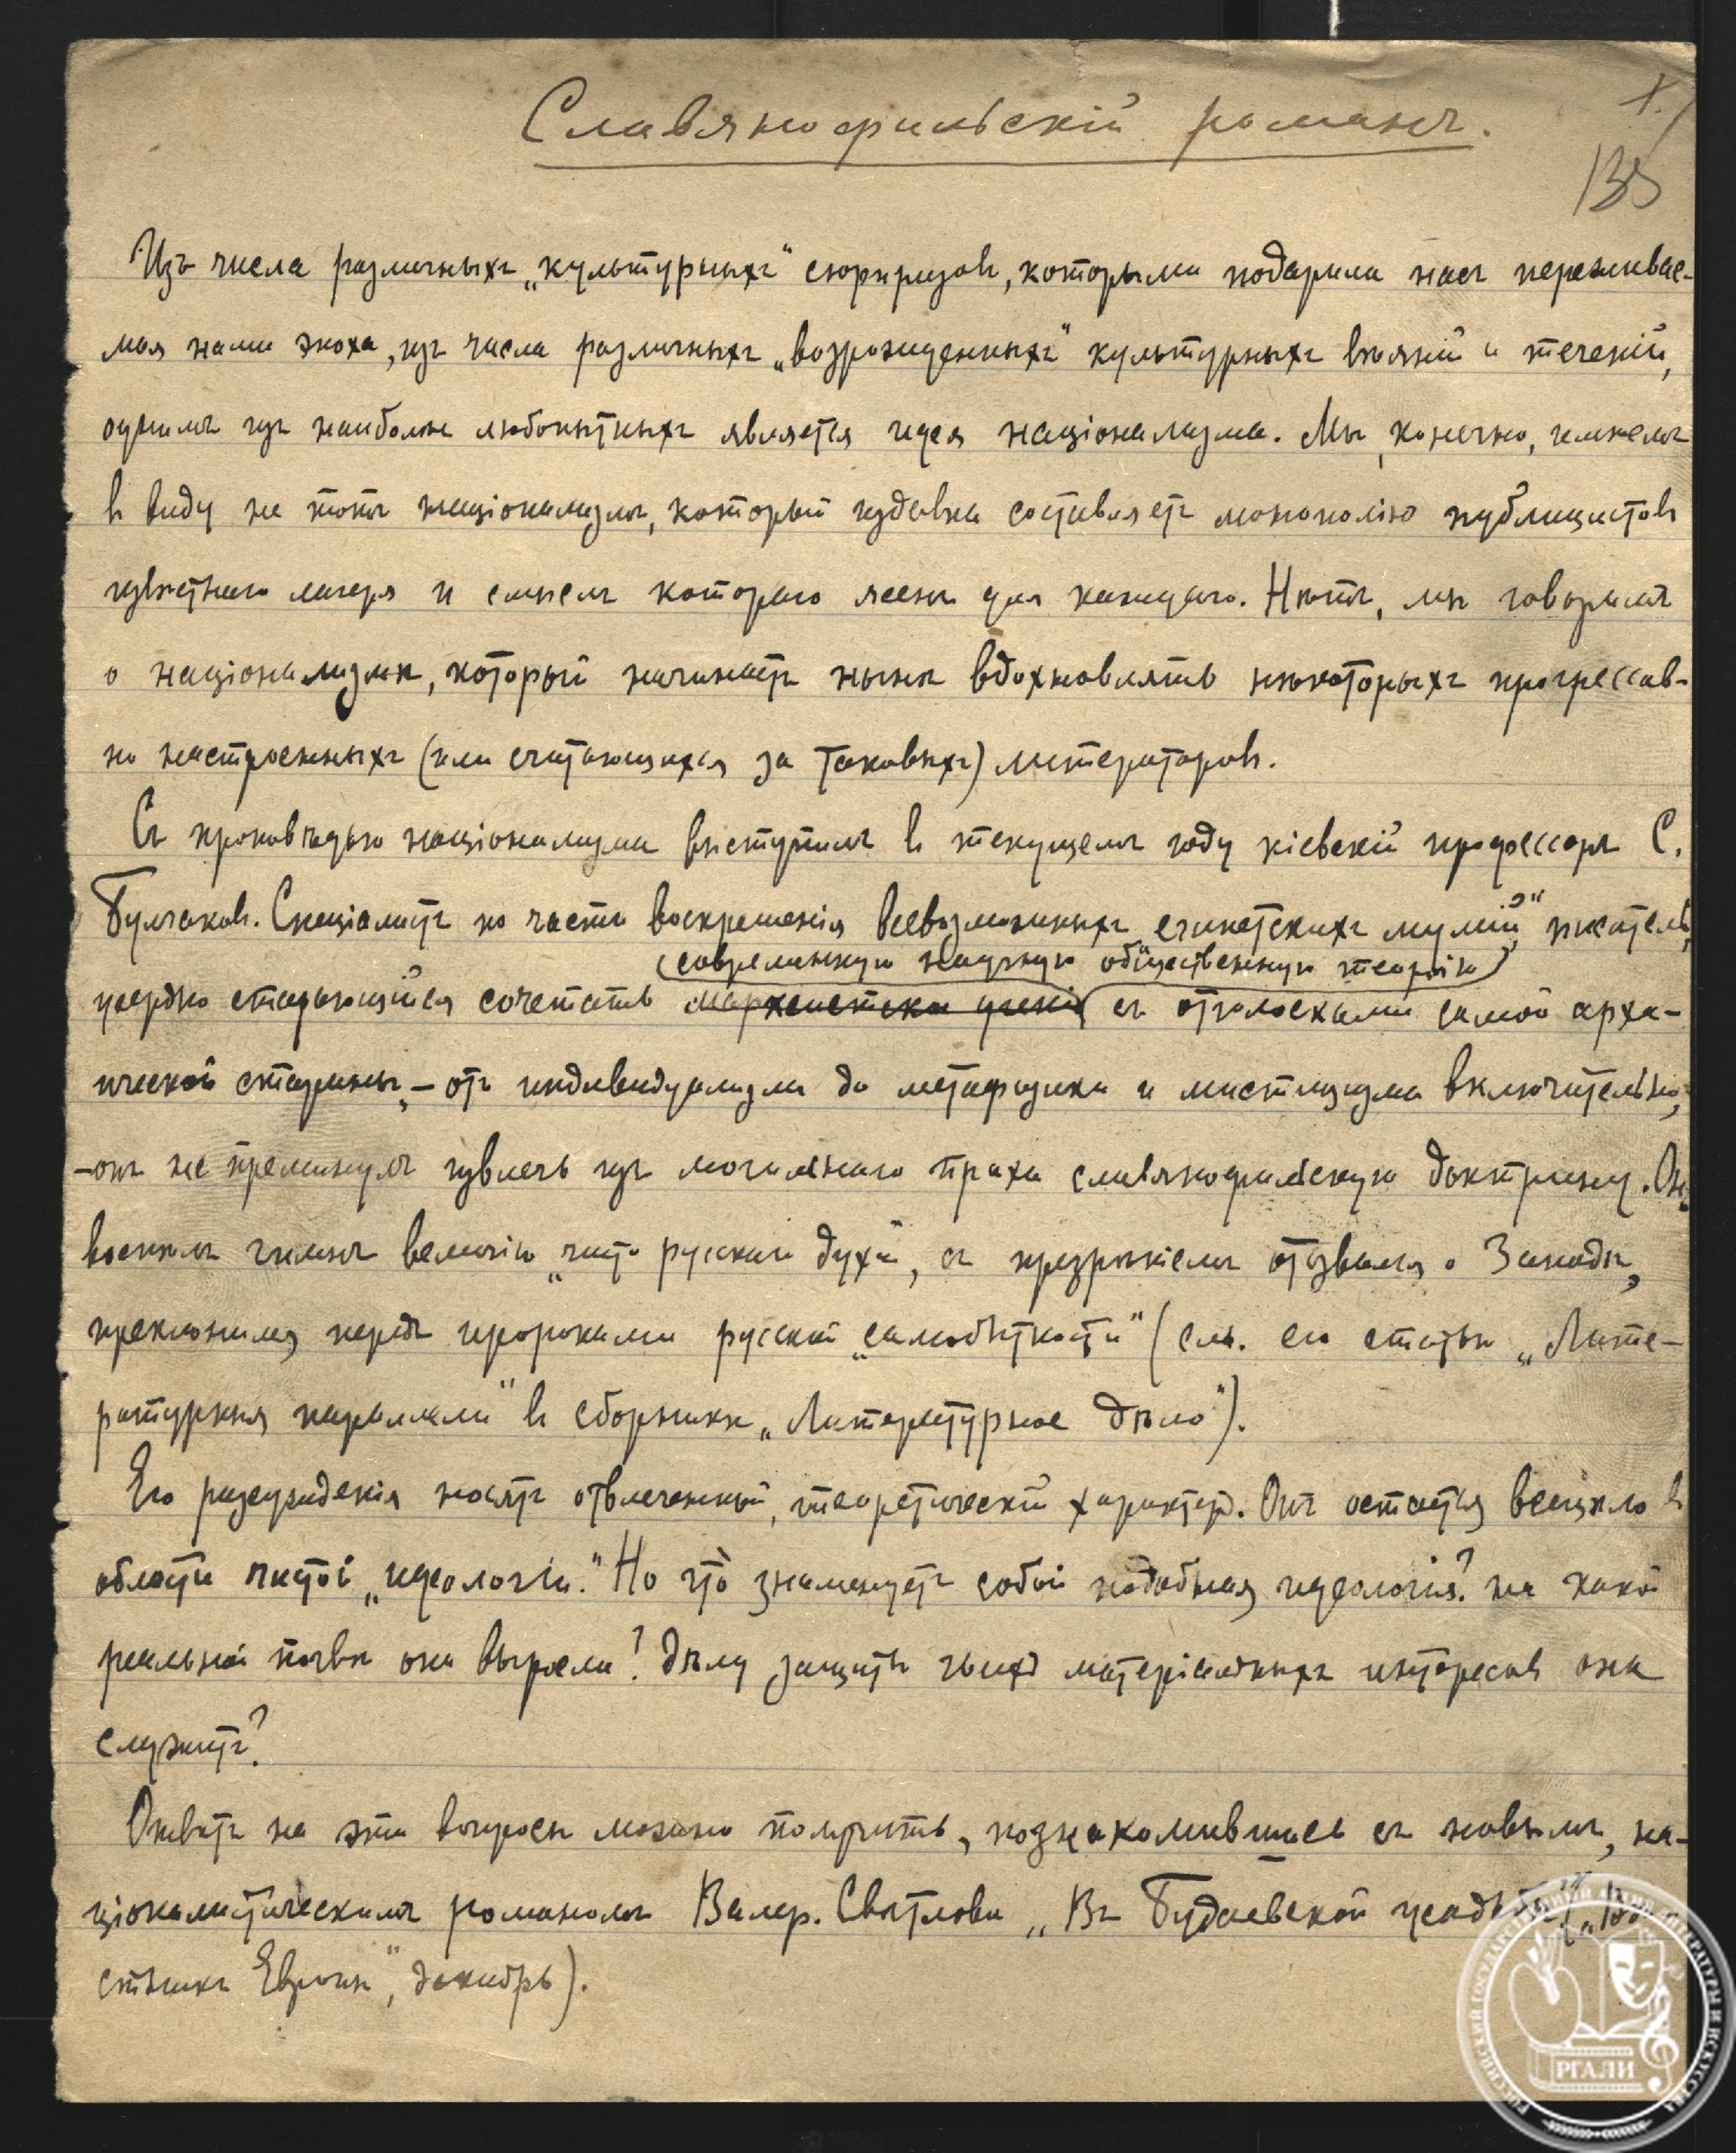 Славянофильскій романъ.
135
Изъ числа различныхъ „культурныхъ“ сюрпризовъ, которыми подарила насъ переживае-
мая нами эпоха, изъ числа различныхъ „возрожденныхъ“ культурныхъ вѣяній и теченій,
однимъ изъ наиболѣе любопытныхъ является идея націонализма. Мы, конечно, имѣемъ
въ виду не тотъ націонализмъ, который издавна составляетъ монополію публицистовъ
извѣстнаго лагеря и смыслъ котораго ясенъ для каждаго. Нѣтъ, мы говоримъ
о націонализмѣ, который начинаетъ нынѣ вдохновлять нѣкоторыхъ прогрессив-
но настроенныхъ (или считающихся за таковыхъ) литераторовъ.
Съ проповѣдью націонализма выступилъ въ текущемъ году кіевскій профессоръ С.
Булгаковъ. Спеціалистъ по части воскрешенія всевозможныхъ „египетскихъ мумій“, писатель,
(современную научную общественную теорію)
усердно старающійся сочетать марксистское ученіе съ отголосками самой арха-
ической старины, – отъ индивидуализма до метафизики и мистицизма включительно,
– онъ не преминулъ извлечь изъ могильнаго праха славянофильскую доктрину. Онъ
воспѣлъ гимнъ величію „чисто русскаго духа“, съ презрѣніемъ отозвался о Западѣ,
преклонился передъ пророками русской „самобытности“ (см. его статью „Лите-
ратурныя параллели“ въ сборникѣ „Литературное дѣло“).
Его разсужденія носятъ отвлеченный, теоретическій характеръ. Онъ остается всецѣло въ
области чистой „идеологіи.“ Но что̀ знаменуетъ собой подобная идеологія? на какой
реальной почвѣ она выросла? дѣлу защиты чьихъ матеріальныхъ интересовъ она
служитъ?
Отвѣтъ на эти вопросы можно получить, познакомившись съ новымъ, на-
ціоналистическимъ романомъ Валер. Свѣтлова „Въ Будаевской усадьбѣ“ („Вѣ-
стникъ Европы“, декабрь).
РОССИЙСКИЙ ГОСУДАРСТВЕННЫЙ АРХИВ ЛИТЕРАТУРЫ И ИСКУССТВА
РГАЛИ